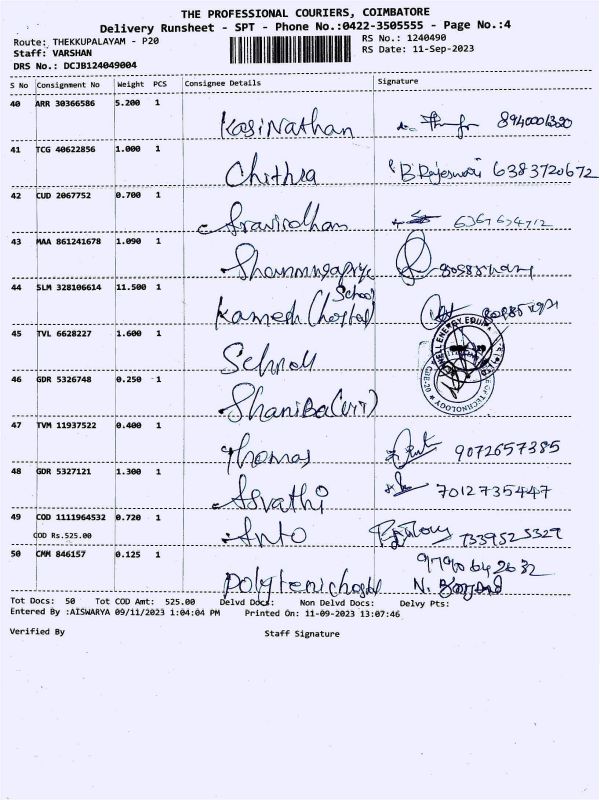 THE PROFESSIONAL COURIERS, COIMBATORE
Delivery Runsheet - SPT - Phone No.:0422-3505555 - Page No.:4
Route: THEKKUPALAYAM - P20
RS No.: 1240490
Staff: VARSHAN
RS Date: 11-Sep-2023
DRS No.: DCJB124049004
S No Consignment No Weight PCS Consignee Details Signature
40 ARR 30366586 5.200 1
Kasinathan 8940001320
41 TCG 40622856 1.000 1
Chithra B. Rajeswari 6383720672
42 CUD 2067752 0.700 1
Aravindhan
43 MAA 861241678 1.090 1
Shanmugapriya
44 SLM 328106614 11.500 1
School
Kamesh (hostel)
45 TVL 6628227 1.600 1
School
46 GDR 5326748 0.250 1
Shaniba
47 TVM 11937522 0.400 1
Thomas 9072657385
48 GDR 5327121 1.300 1
Asvathi 7012735447
49 COD 1111964532 0.720 1
COD Rs.525.00
Anto 7339525329
50 CMM 846157 0.125 1
9790642632
Tot Docs: 50 Tot COD Amt: 525.00 Delvd Docs: Non Delvd Docs: Delvy Pts:
Entered By :AISWARYA 09/11/2023 1:04:04 PM Printed On: 11-09-2023 13:07:46
Verified By Staff Signature